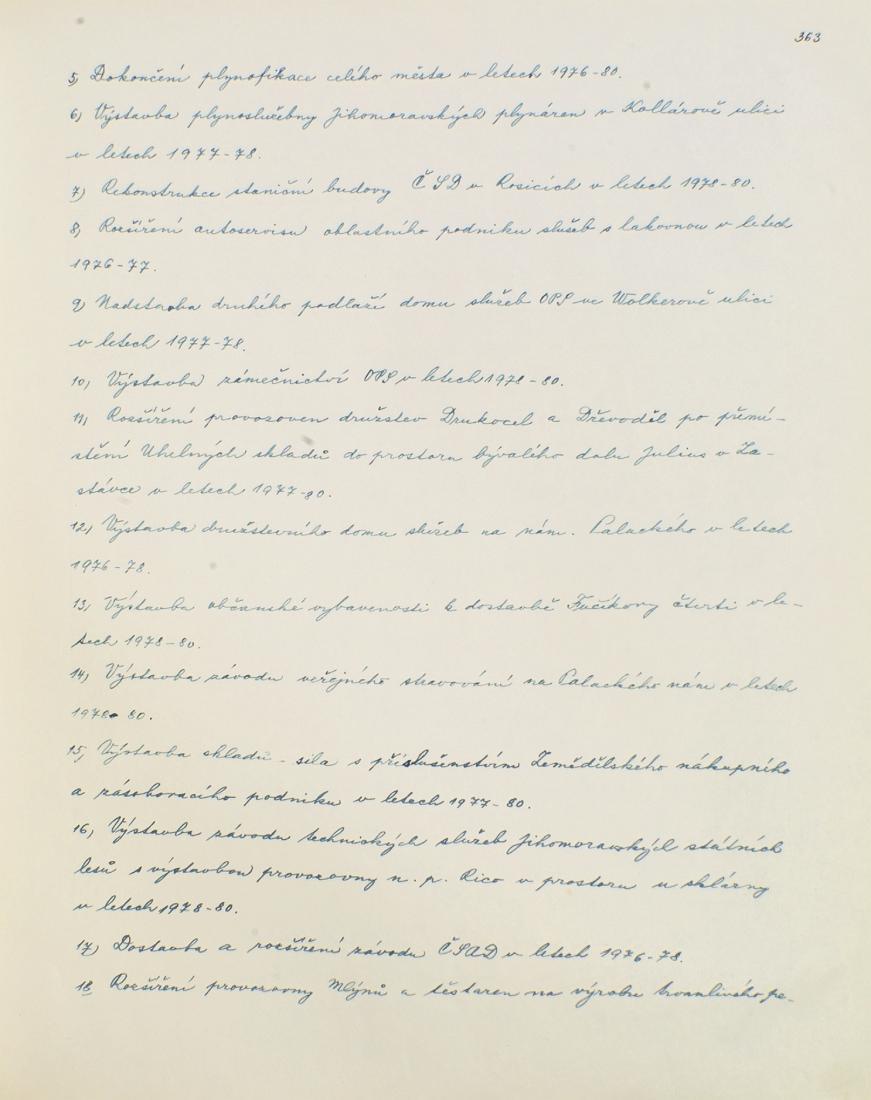 363
5) Dokončení plynofikace celého města v letech 1976-80.
6) Výstavba plynoslužebny Jihomoravských plynáren v Kollárově ulici
v letech 1977-78.
7) Rekonstrukce staniční budovy ČSD v Rosicích v letech 1978-80.
8) Rozšíření autoservisu oblastního podniku služeb s lakovnou v letech
1976-77.
9) Nadstavba druhého podlaží domu služeb OPS ve Wolkerově ulici
v letech 1977-78.
10) Výstavba zámečnictví OPS v letech 1978-80.
11) Rozšíření provozoven družstev Drukocel a Dřevoděl po přemí-
stění Uhelných skladů do prostoru bývalého dolu Julius v Za-
stávce v letech 1977-80.
12) Výstavba družstevního domu služeb na nám. Palackého v letech
1976-78.
13) Výstavba občanské vybavenosti k dostavbě Fučíkovy čtvrti v le-
tech 1978-80.
14) Výstavba závodu veřejného stravování na Palackého nám v letech
1978-80.
15) Výstavba skladu - sila s příslušenstvím Zemědělského nákupního
a zásobovacího podniku v letech 1977-80.
16) Výstavba závodu technických služeb Jihomoravských státních
lesů s výstavbou provozovny n. p. Rico v prostoru u sklárny
v letech 1978-80.
17) Dostavba a rozšíření závodu ČSAD v letech 1976-78.
18 Rozšíření provozovny Mlýnů a těstáren na výrobu trvanlivého pe-